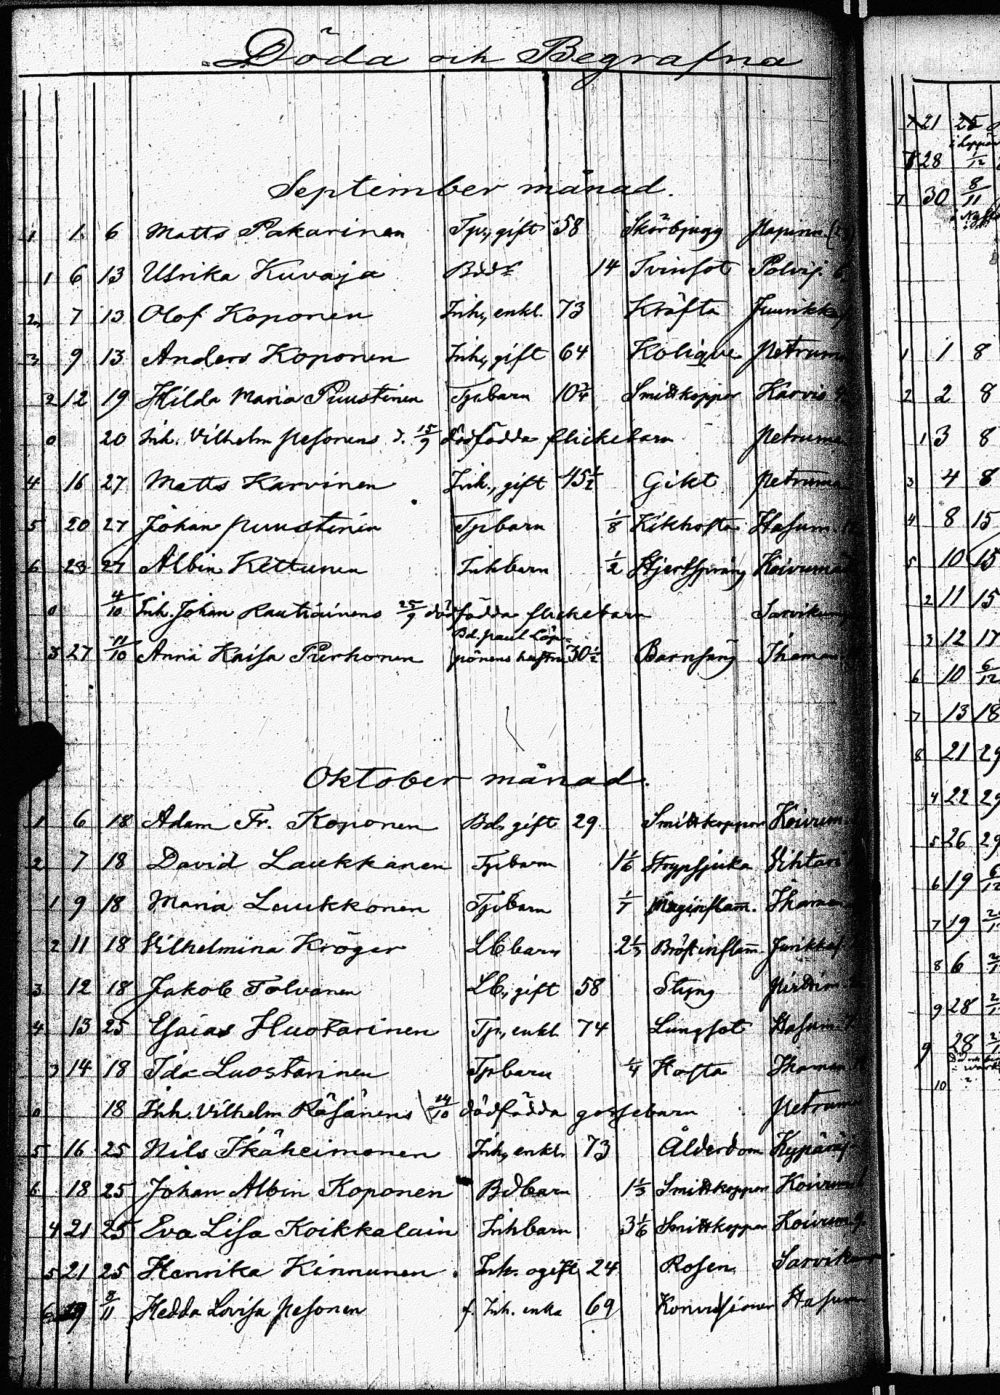 Döda och Begrafna
September månad.
1 1 6 Matts Pakarinen Tpr, gift 58 Skörbjugg
1 6 13 Ulrika Kuvaja 14 Tvinsot Polvij
2 7 13 Olof Koponen Inh, enkl. 73 Kräfta Juurikka
3 9 13 Anders Koponen Inh, gift 64 Kolique Petruma
2 12 19 Hilda Maria Puustinen Tprbarn 10 Smittkoppor Karvio
0 20 Inh. Vilhelm Pesonens d. 15/9 dödfödda flickebarn Petruma
4 16 27 Matts Karvinen Inh., gift 45 1/2 Gikt Petruma
5 20 27 Johan Puustinen Tprbarn 1/8 Kikhosta Hasum
6 23 27 Albin Kettunen Inhbarn 1/2 Hjertsprång Koivumä
0 4/10 Inh. Johan Rautiainens 25/9 dödfödda flickebarn Sarvikum
3 27 11/10 Anna Kaisa Pirhonen Bd. Paul Löppönens hustru 30 1/2 Barnsäng
Oktober månad.
1 6 18 Adam Fr. Koponen Bd, gift 29 Smittkoppor Koivum
2 7 18 David Laukkanen Tprbarn 1 1/6 Strypsjuka Vihtari
1 9 18 Maria Laukkonen Tprbarn 1/7 Maginflam.
2 11 18 Vilhelmina Kröger Lbbarn 2 1/3 Bröstinflam. Jurikka
3 12 18 Jakob Tolvanen Lb, gift 58 Styng
4 13 25 Esaias Huotarinen Tpr, enkl. 74 Lungsot Hasum
3 14 18 Ida Luostarinen Tprbarn 1/4 Hosta
0 18 Inh. Vilhelm Räsänens 14/10 dödfödda gossebarn Petruma
5 16 25 Nils Ikäheimonen Inh, enkl. 73 Ålderdom Kypäräj
6 18 25 Johan Albin Koponen Bdbarn 1 1/3 Smittkoppor Koivum
4 21 25 Eva Lisa Koikkalain Inhbarn 3 1/6 Smittkoppor Koivum
5 21 25 Henrika Kinnunen Inh. ogift 24 Rosen Sarvikum
6 29 2/11 Hedda Lovisa Pesonen f. Inh. enka 69 Konvulsioner Hasum
21 25
28 /12
7 30 8/11
1 1 8
2 2 8
1 3 8
3 4 8
4 8 15
5 10 15
2 11 15
3 12 17
6 10 6/12
7 13 18
8 21 29
4 22 29
5 26 29
6 19 6/12
7 19
8 6
9 28
9 28
10